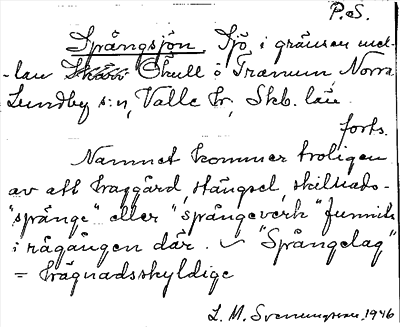 P.S.
Spångsjön Sjö i gränsen mel-
-lan Skull o Tranum Norra
Lundby s:n, Valle hr, Skb. län.
forts.
Namnet kommer troligen
av att haggård, stängsel, skillnads-
"spånge" eller "spångeverk" funnits
i rågången där. "Spångelag"
= hägnadsskyldige
L. M. Svenungsson, 1946